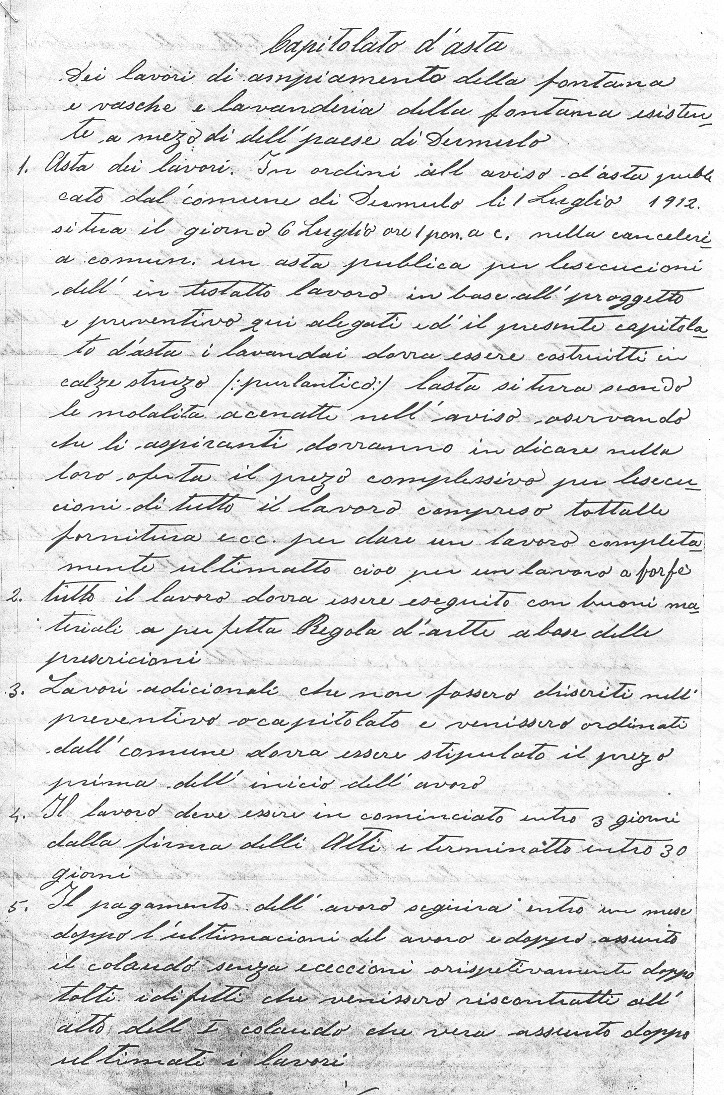 Capitolato d'asta
Dei lavori di ampiamento della fontana
e vasche e lavanderia della fontana esisten-
te a mezo di dell'paese di Dermulo
1. Asta dei lavori. In ordini all aviso d'asta publi
cato dal'comune di Dermulo li 1 Luglio 1912.
si tua il giorno 6 Luglio ore 1 pom. a c. nella canceleri-
a comun. un asta publica per lesecucioni
dell' in testatto lavoro in base all'proggetto
e preventivo qui alegati ed'il presente capitola-
to d'asta i lavandai dovra essere costruitti in
calze struzo (:purlantico:) lasta si turra secondo
le modalita acenatte nell'aviso oservando
che li aspiranti dovranno in dicare nella
loro oferta il prezo complessivo per lesecu-
cioni di tutto il lavoro compreso tottalle
fornitura ecc. per dare un lavoro completa-
mente ultimatto cioe per un lavoro a forfe
2. tutto il lavoro dovra essere eseguito con buoni ma-
teriali a perfetta Regola d'artte abase delle
prescricioni
3. Lavori adicionali che non fossero discriti nell'
preventivo o capitolato e venissero ordinati
dall'comune dovra essere stipulato il prezo
prima dell' inicio dell'avoro
4. Il lavoro deve essere in cominciato entro 3 giorni
dalla firma delli Atti e terminatto entro 30
giorni
5. Il pagamento dell'avoro seguira entro un mese
doppo l'ultimacioni del avoro e doppo assunto
il colaudo senza ececcioni o rispetivamente doppo
tolti i difetti che venissero riscontratti all'
atto dell I colaudo che vera assunto doppo
ultimati i lavori